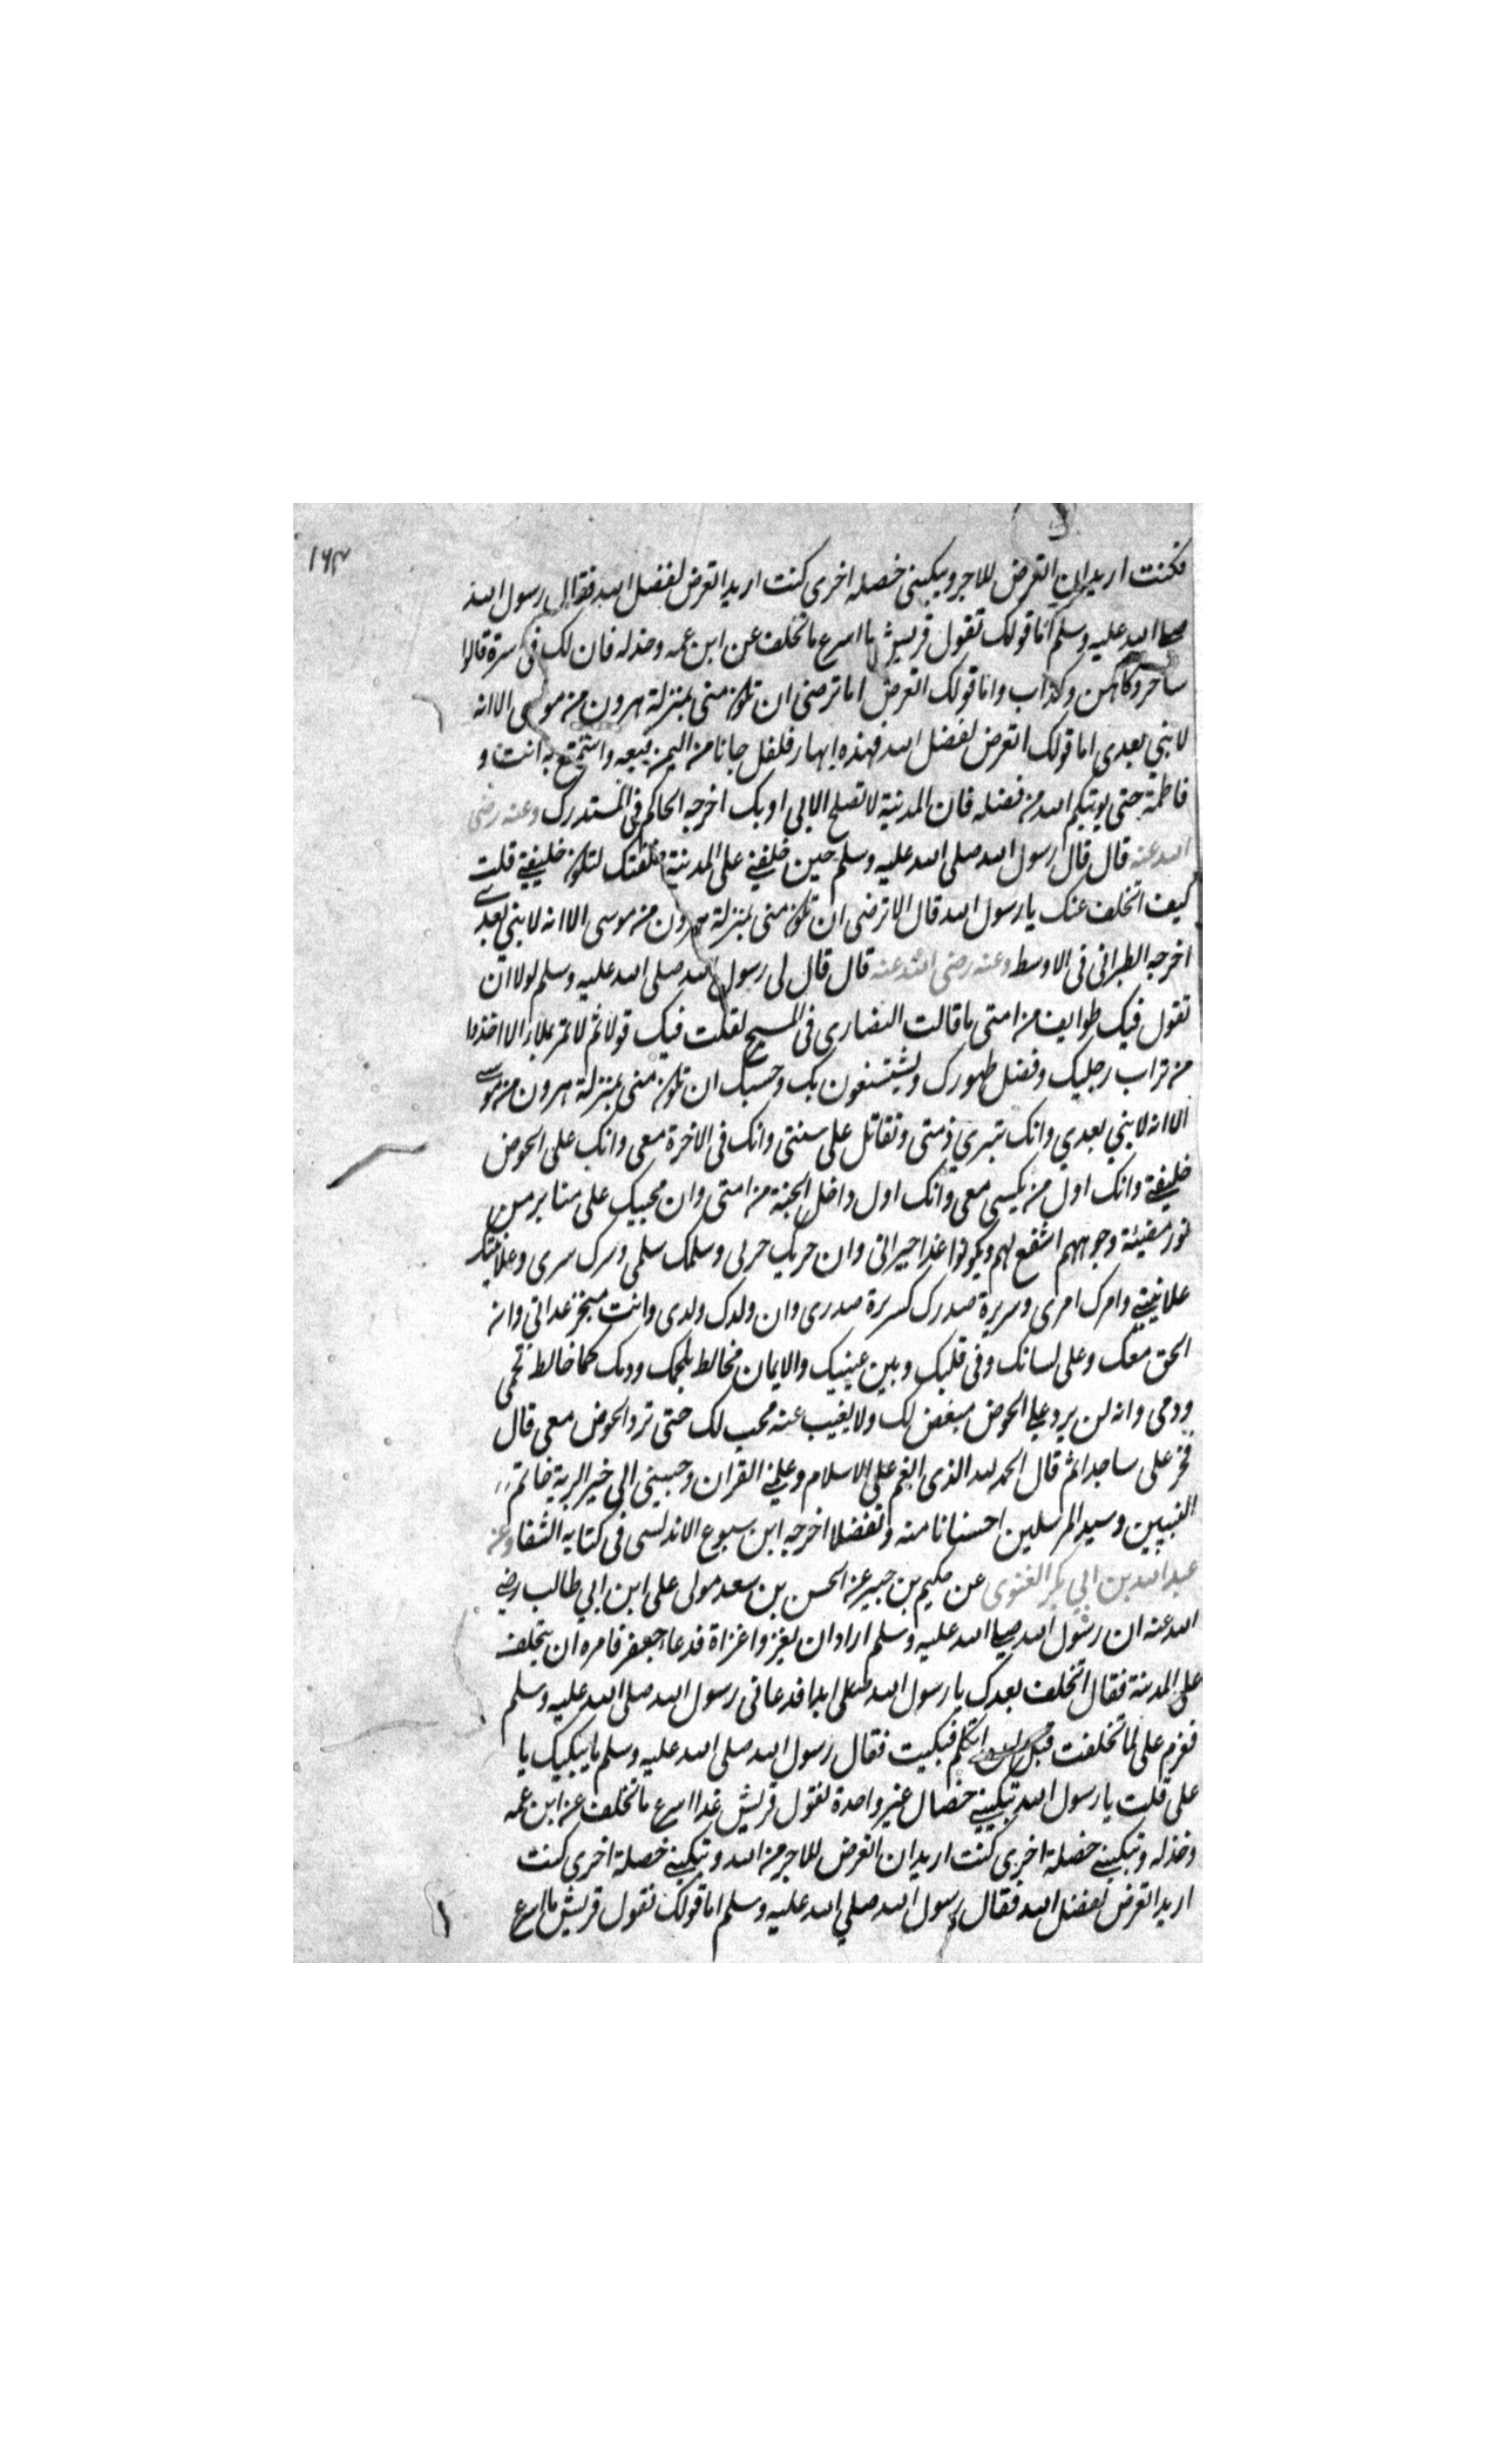 ١٦٣
فكنت اريد ان اتعرض للاجر ويبكيني خصلة اخرى كنت اريد اتعرض لفضل الله فقال رسول الله
صلى الله عليه وسلم اما قولك تقول قريش ما اسرع ما تخلف عن ابن عمه وخذله فان لك فى اسوة قالوا
ساحر وكاهن وكذاب واما قولك اتعرض اما ترضى ان تكون منى بمنزلة هرون من موسى الا انه
لا نبي بعدى اما قولك اتعرض لفضل الله فهذه ابهار فلفل جانا من اليمن فبعه واستمتع به انت و
فاطمة حتى يوتيكم الله من فضله فان المدينة لا تصلح الا بى او بك اخرجه الحاكم فى المستدرك وعنه رضى
الله عنه قال قال رسول الله صلى الله عليه وسلم حين خلفني على المدينة خلفتك لتكون خليفتي قلت
كيف اتخلف عنك يا رسول الله قال الا ترضى ان تكون منى بمنزلة هرون من موسى الا انه لا نبي بعدي
اخرجه الطبرانى فى الاوسط وعنه رضى الله عنه قال قال لى رسول الله صلى الله عليه وسلم لولا ان
تقول فيك طوايف من امتى ما قالت النصارى فى المسيح لقلت فيك قولا ثم لا تمر بملاء الا اخذوا
من تراب رجليك وفضل طهورك ويستشفون بك وحسبك ان تكون منى بمنزلة هرون من موسى
الا انه لا نبي بعدي وانك تبري ذمتى وتقاتل على سنتى وانك فى الاخرة معى وانك على الحوض
خليفتي وانك اول من يكسى معى وانك اول داخل الجنة من امتى وان محبيك على منابر من
نور مضيئة وجوههم اشفع لهم ويكونوا غدا جيرانى وان حربك حربى وسلمك سلمى وسرك سرى وعلانيتك
علانيتي وامرك امرى وسريرة صدرك كسريرة صدرى وان ولدك ولدى وانت منجز عداتى وانه
الحق معك وعلى لسانك وفى قلبك وبين عينيك والايمان مخالط بلحمك ودمك كما خالط لحمى
ودمى وانه لن يرد علي الحوض مبغض لك ولا يغيب عنه محب لك حتى ترد الحوض معى قال
فخر على ساجدا ثم قال الحمد لله الذى انعم على بالاسلام وعلمني القران وحببنى الى خير البرية خاتم
النبيين وسيد المرسلين احسانا منه وتفضلا اخرجه ابن سبوع الاندلسى فى كتابه الشفا وعن
عبد الله بن ابي بكر الغنوى عن حكيم بن جبير عن الحسن بن سعد مولى على ابن ابي طالب رضي
الله عنه ان رسول الله صلى الله عليه وسلم اراد ان يغزو غزاة فدعا جعفر فامره ان يتخلف
على المدينة فقال اتخلف بعدك يا رسول الله ابدا فدعانى رسول الله صلى الله عليه وسلم
فعزم على لما تخلفت قبل ان اتكلم فبكيت فقال رسول الله صلى الله عليه وسلم ما يبكيك يا
على قلت يا رسول الله تبكيني خصال غير واحدة تقول قريش غدا اسرع ما تخلف عن ابن عمه
وخذله وتبكيني خصلة اخرى كنت اريد ان اتعرض للاجر من الله وتبكيني خصلة اخرى كنت
اريد اتعرض لفضل الله فقال رسول الله صلي الله عليه وسلم اما قولك تقول قريش ما اسرع